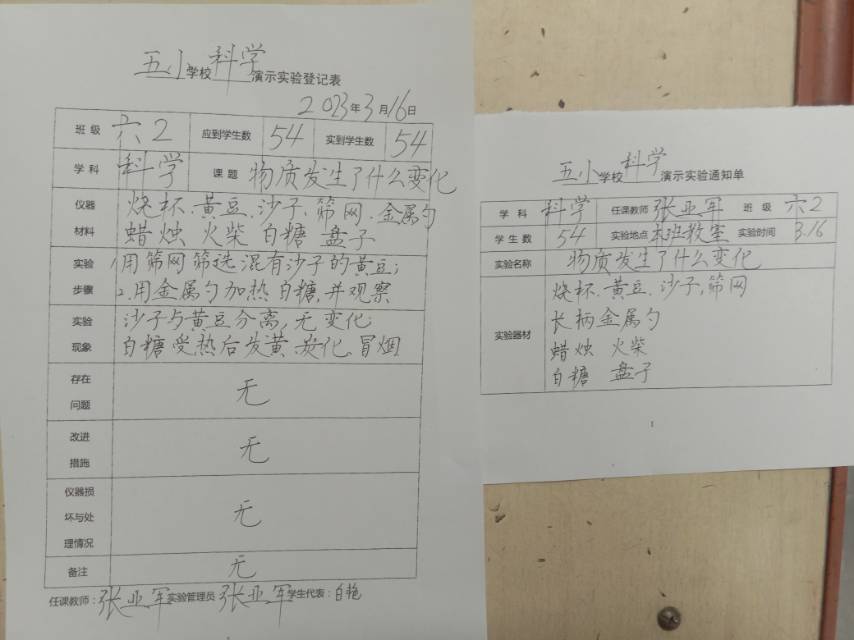 五小学校科学演示实验登记表
2023年3月16日
班级 六2 应到学生数 54 实到学生数 54
学科 科学 课题 物质发生了什么变化
仪器 烧杯、黄豆、沙子、筛网、金属勺
材料 蜡烛 火柴 白糖 盘子
实验 1用筛网筛选混有沙子的黄豆;
步骤 2.用金属勺加热白糖,并观察
实验 沙子与黄豆分离,无变化;
现象 白糖受热后发黄、炭化、冒烟
存在
问题 无
改进
措施 无
仪器损
坏与处 无
理情况
备注 无
任课教师:张亚军 实验管理员 张亚军 学生代表:白艳
五小学校科学演示实验通知单
学科 科学 任课教师 张亚军 班级 六2
学生数 54 实验地点 本班教室 实验时间 3.16
实验名称 物质发生了什么变化
烧杯、黄豆、沙子,筛网
长柄金属勺
实验器材
蜡烛 火柴
白糖 盘子